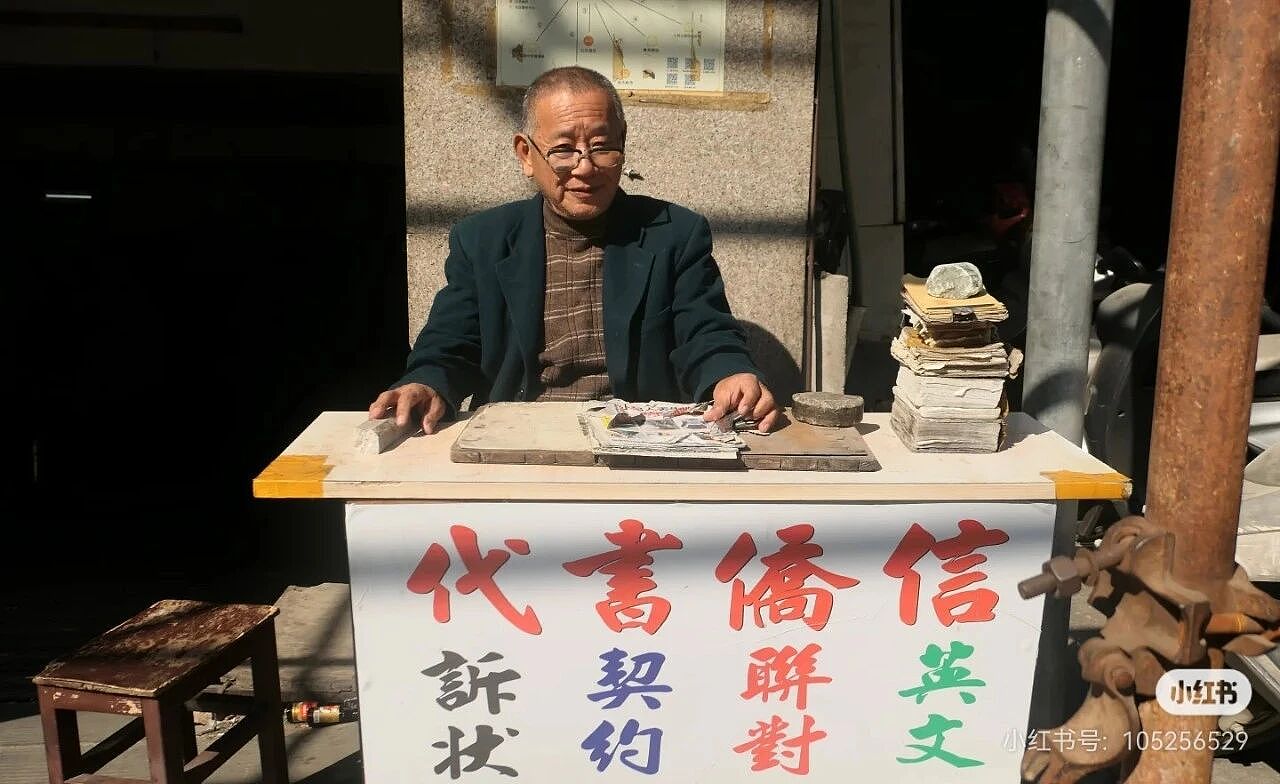 代書僑信
訴 契 聯 英
状 约 對 文
小红书
小红书号: 105256529